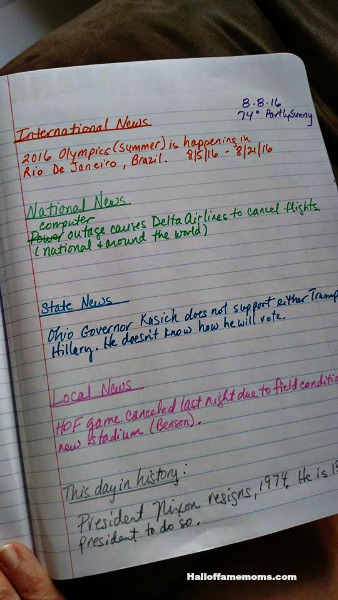 8.8.16
74° Partly Sunny
International News
2016 Olympics (summer) is happening in
Rio De Janeiro, Brazil. 8/5/16 - 8/21/16
National News
computer
Power outage causes Delta Airlines to cancel flights
(national + around the world)
State News
Ohio Governor Kasich does not support either Trump
Hillery. He doesn't know how he will vote.
Local News
HOF game canceled last night due to field conditio
new stadium (Benson).
This day in history:
President Nixon resigns, 1974. He is 1s
president to do so.
Halloffamemoms.com